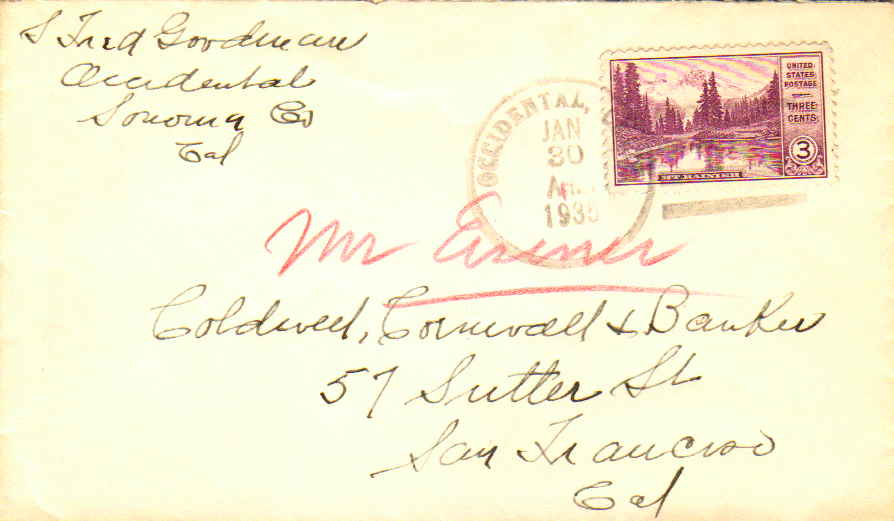 S Fred Goodman
Occidental
Sonoma Co
Cal
OCCIDENTAL,
JAN
30
A.M.
1935
UNITED
STATES
POSTAGE
THREE
CENTS
3
MT. RAINIER
Mr
Coldwell, Cornwall & Banker
57 Sutter St
San Francisco
Cal